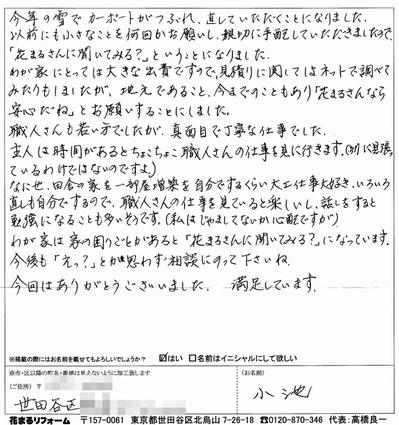 今年の雪でカーポートがつぶれ、直していただくことになりました。
以前にも小さなことを何回かお願いし、親切に手配していただきましたので
「花まるさんに聞いてみる?」ということになりました。
わが家にとっては大きな出費ですので、見積りに関してはネットで調べて
みたりもしましたが、地元であること、今までのこともあり「花まるさんなら
安心だね」とお願いすることにしました。
職人さんも若い方でしたが、真面目で丁寧な仕事でした。
主人は時間があるとちょこちょこ職人さんの仕事を見に行きます。(別に見張っ
ているわけではないのですよ。)
なにせ、田舎の家を一部屋増築を自分でするくらい大工仕事大好き、いろいろ
直しも自分でするので、職人さんの仕事を見ていると楽しいし、話しをすると
勉強になることも多いそうです。(私はじゃましてないか心配ですが)
わが家は家の困りごとがあると「花まるさんに聞いてみる?」になっています。
今後も「えっ?」とか思わず相談にのって下さいね。
今回はありがとうございました。 満足しています。
※掲載の際にはお名前を載せてもよろしいでしょうか? ☑はい □名前はイニシャルにして欲しい
※市・区以降の町名・番地は見えないように加工致します
(ご住所) 〒
(お名前)
世田谷区
小池
花まるリフォーム 〒157-0061 東京都世田谷区北烏山7-26-18 ☎0120-870-346 代表:高橋良一